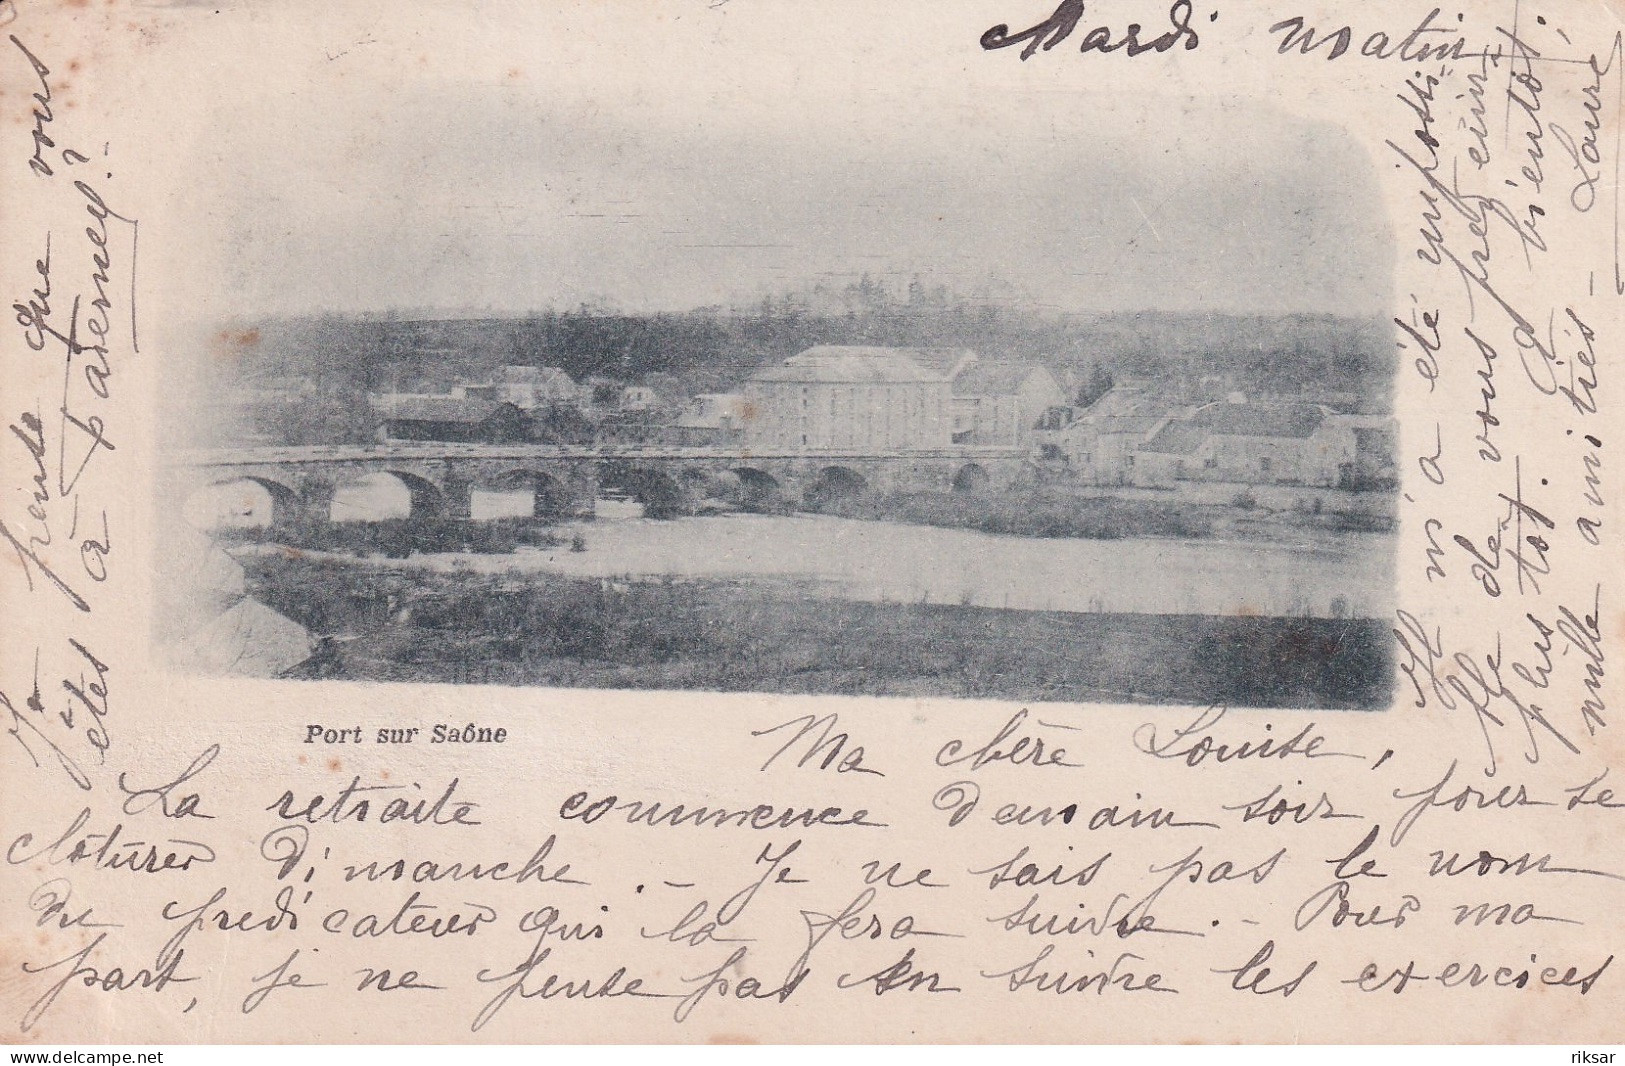 Mardi matin
Port sur Saône
Ma chère Louise,
La retraite commence demain soir pour se
clôturer dimanche. - Je ne sais pas le nom
du predicateur qui la fera suivre. - Pour ma
part, je ne pense pas en suivre les exercices
Je pense que vous
êtes à Faverney ? -
Il m'a été impossi-
ble de vous prévenir
plus tôt. A bientôt,
mille amitiés - Laure
delcampe.net
riksar